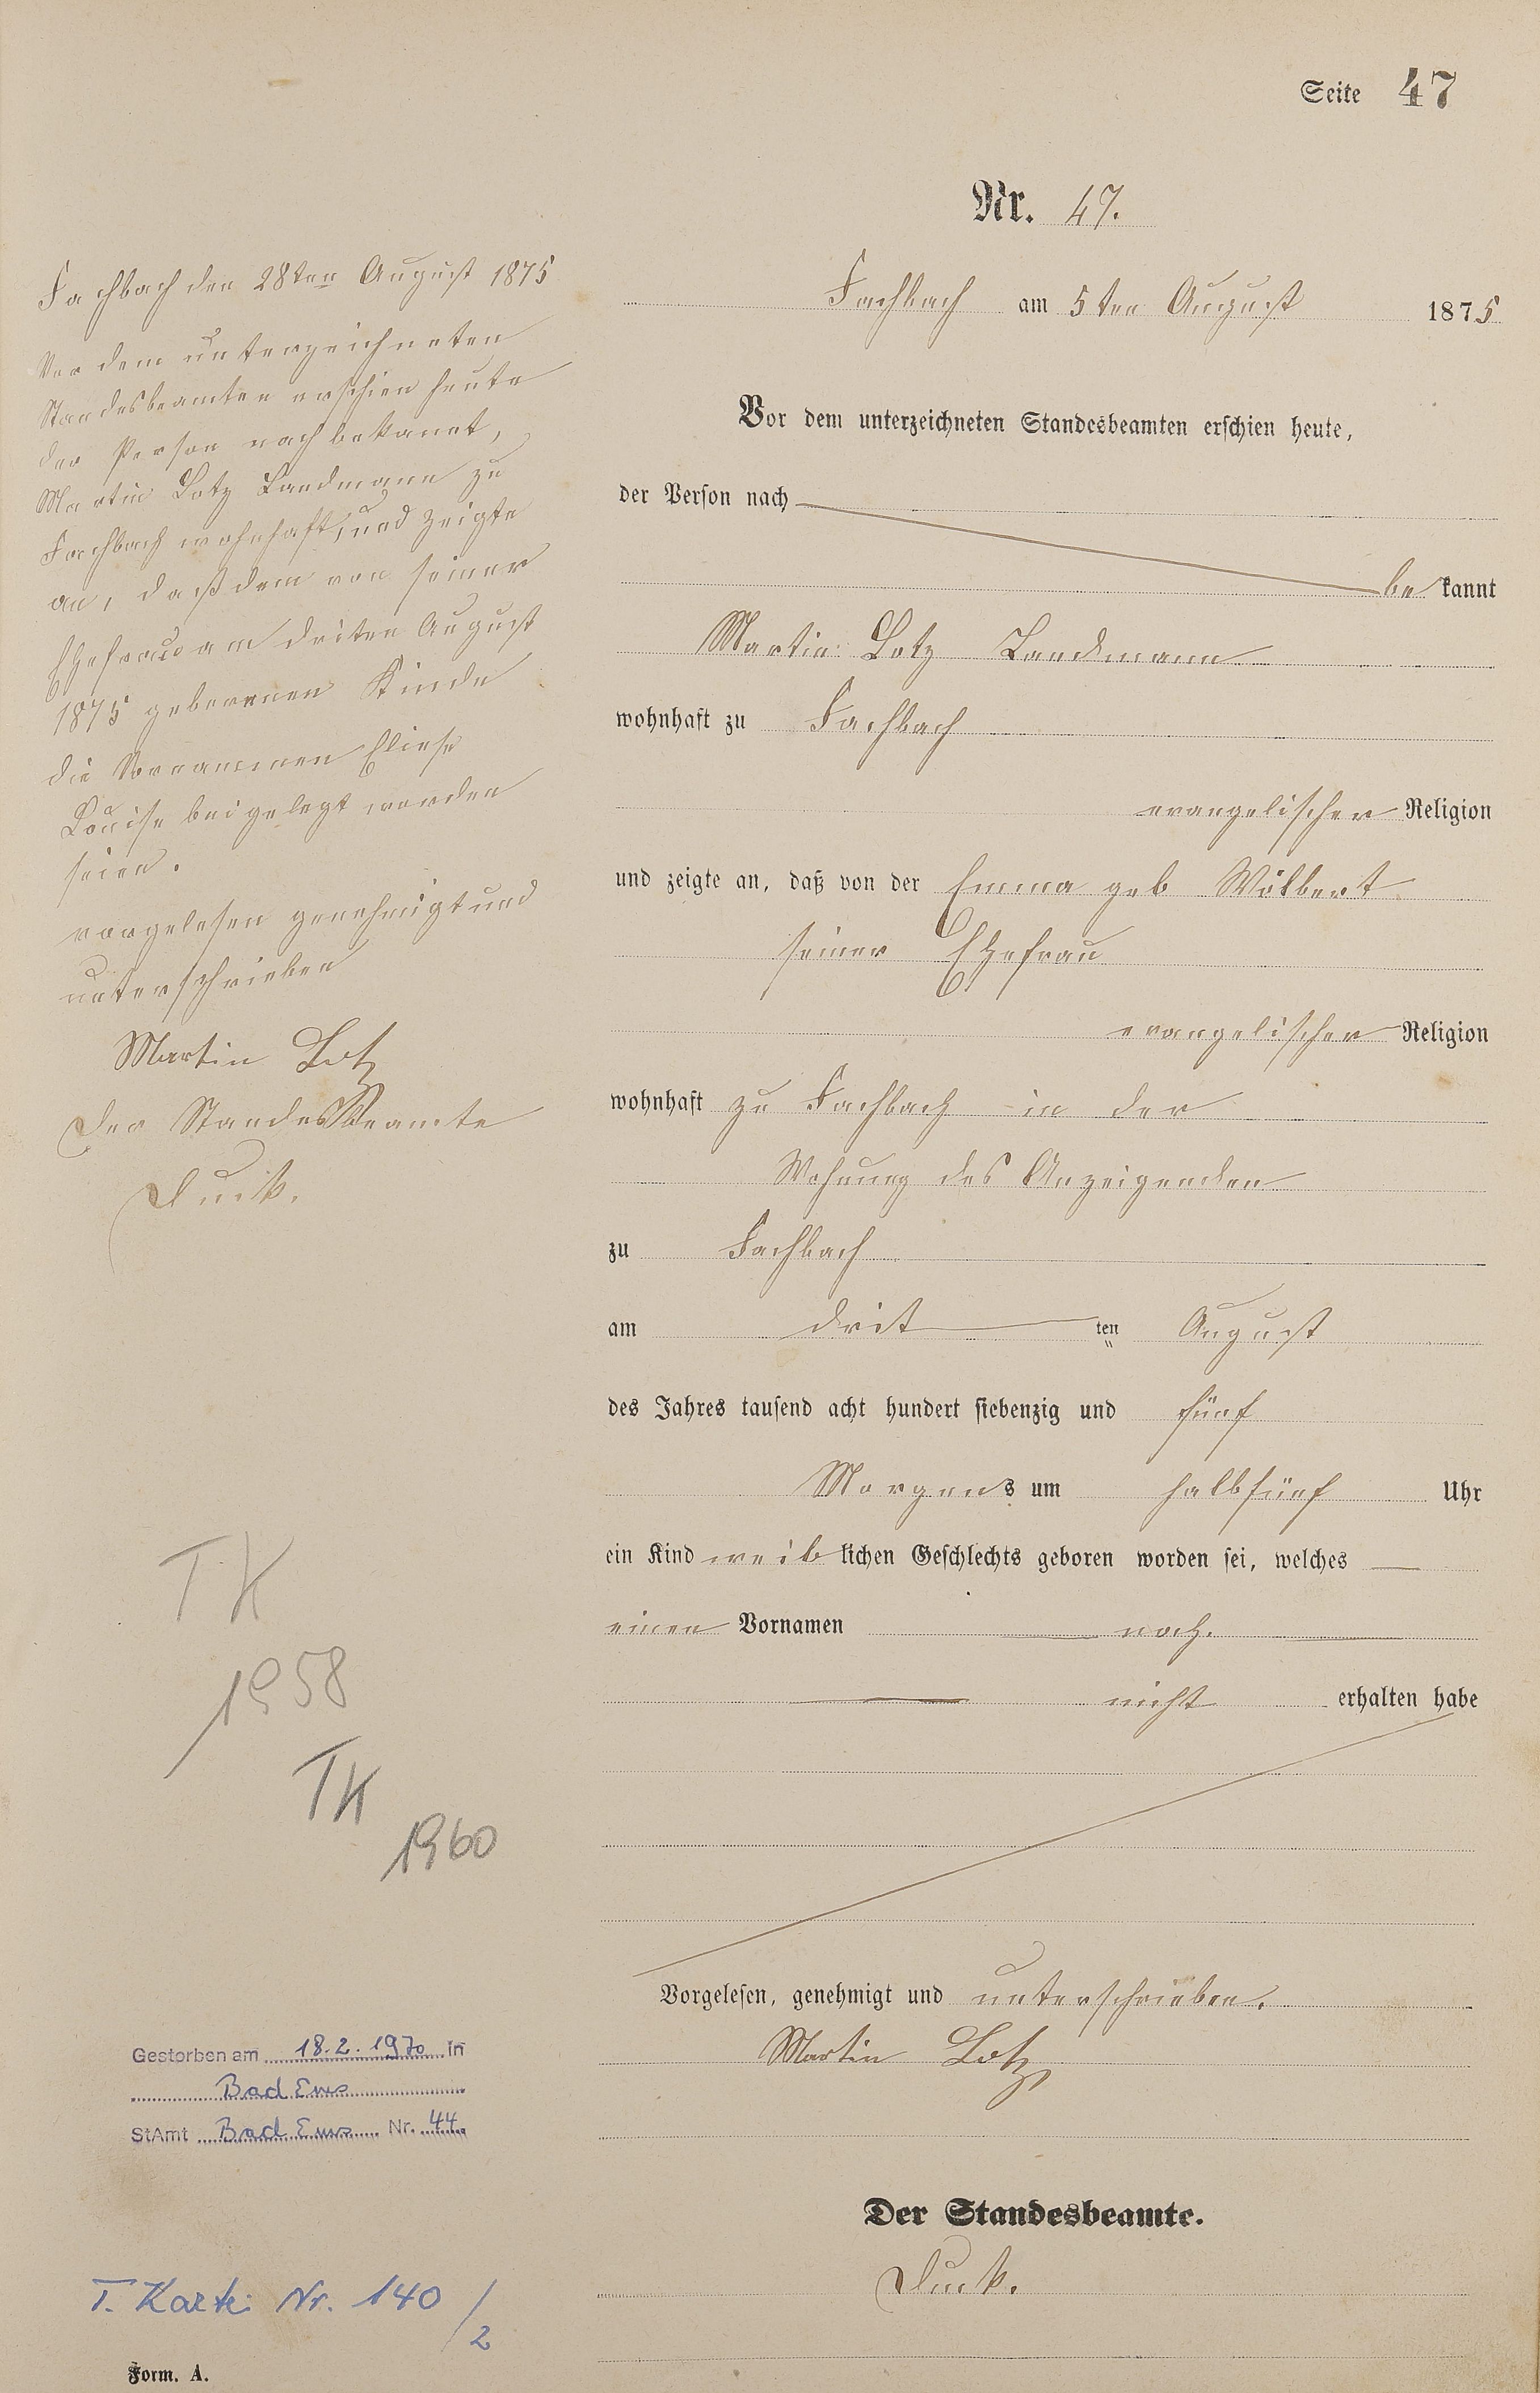 Seite 47
Nr. 47.
Fachbach am 5ten August 1875
Vor dem unterzeichneten Standesbeamten erschien heute,
der Person nach
be kannt
Martin Lotz Landmann
wohnhaft zu Fachbach
evangelischer Religion
und zeigte an, daß von der Emma geb Wölbert
seiner Ehefrau
evangelischer Religion
wohnhaft zu Fachbach in der
Wohnung des Anzeigenden
zu Fachbach
am drit ten August
des Jahres tausend acht hundert siebenzig und fünf
Morgens um halbfünf Uhr
ein Kind weib lichen Geschlechts geboren worden sei, welches
einen Vornamen noch.
nicht erhalten habe
Vorgelesen, genehmigt und unterschrieben.
Martin Lotz
Der Standesbeamte.
Fachbach den 28ten August 1875
Vor dem unterzeichneten
Standesbeamten erschien heute
der Person nach bekannt,
Martin Lotz Landmann zu
Fachbach wohnhaft, und zeigte
an, daß dem von seiner
Ehefrau am driten August
1875 geborenen Kinde
die Vornammen Eliese
Louise beigelegt worden
seien.
vorgelesen genehmigt und
unterschrieben
Martin Lotz
Der StandesBeamte
TK
1958
TK
1960
Gestorben am 18.2.1970 in
Bad Ems
StAmt Bad Ems Nr. 44
T. Kartei Nr. 140/2
Form. A.